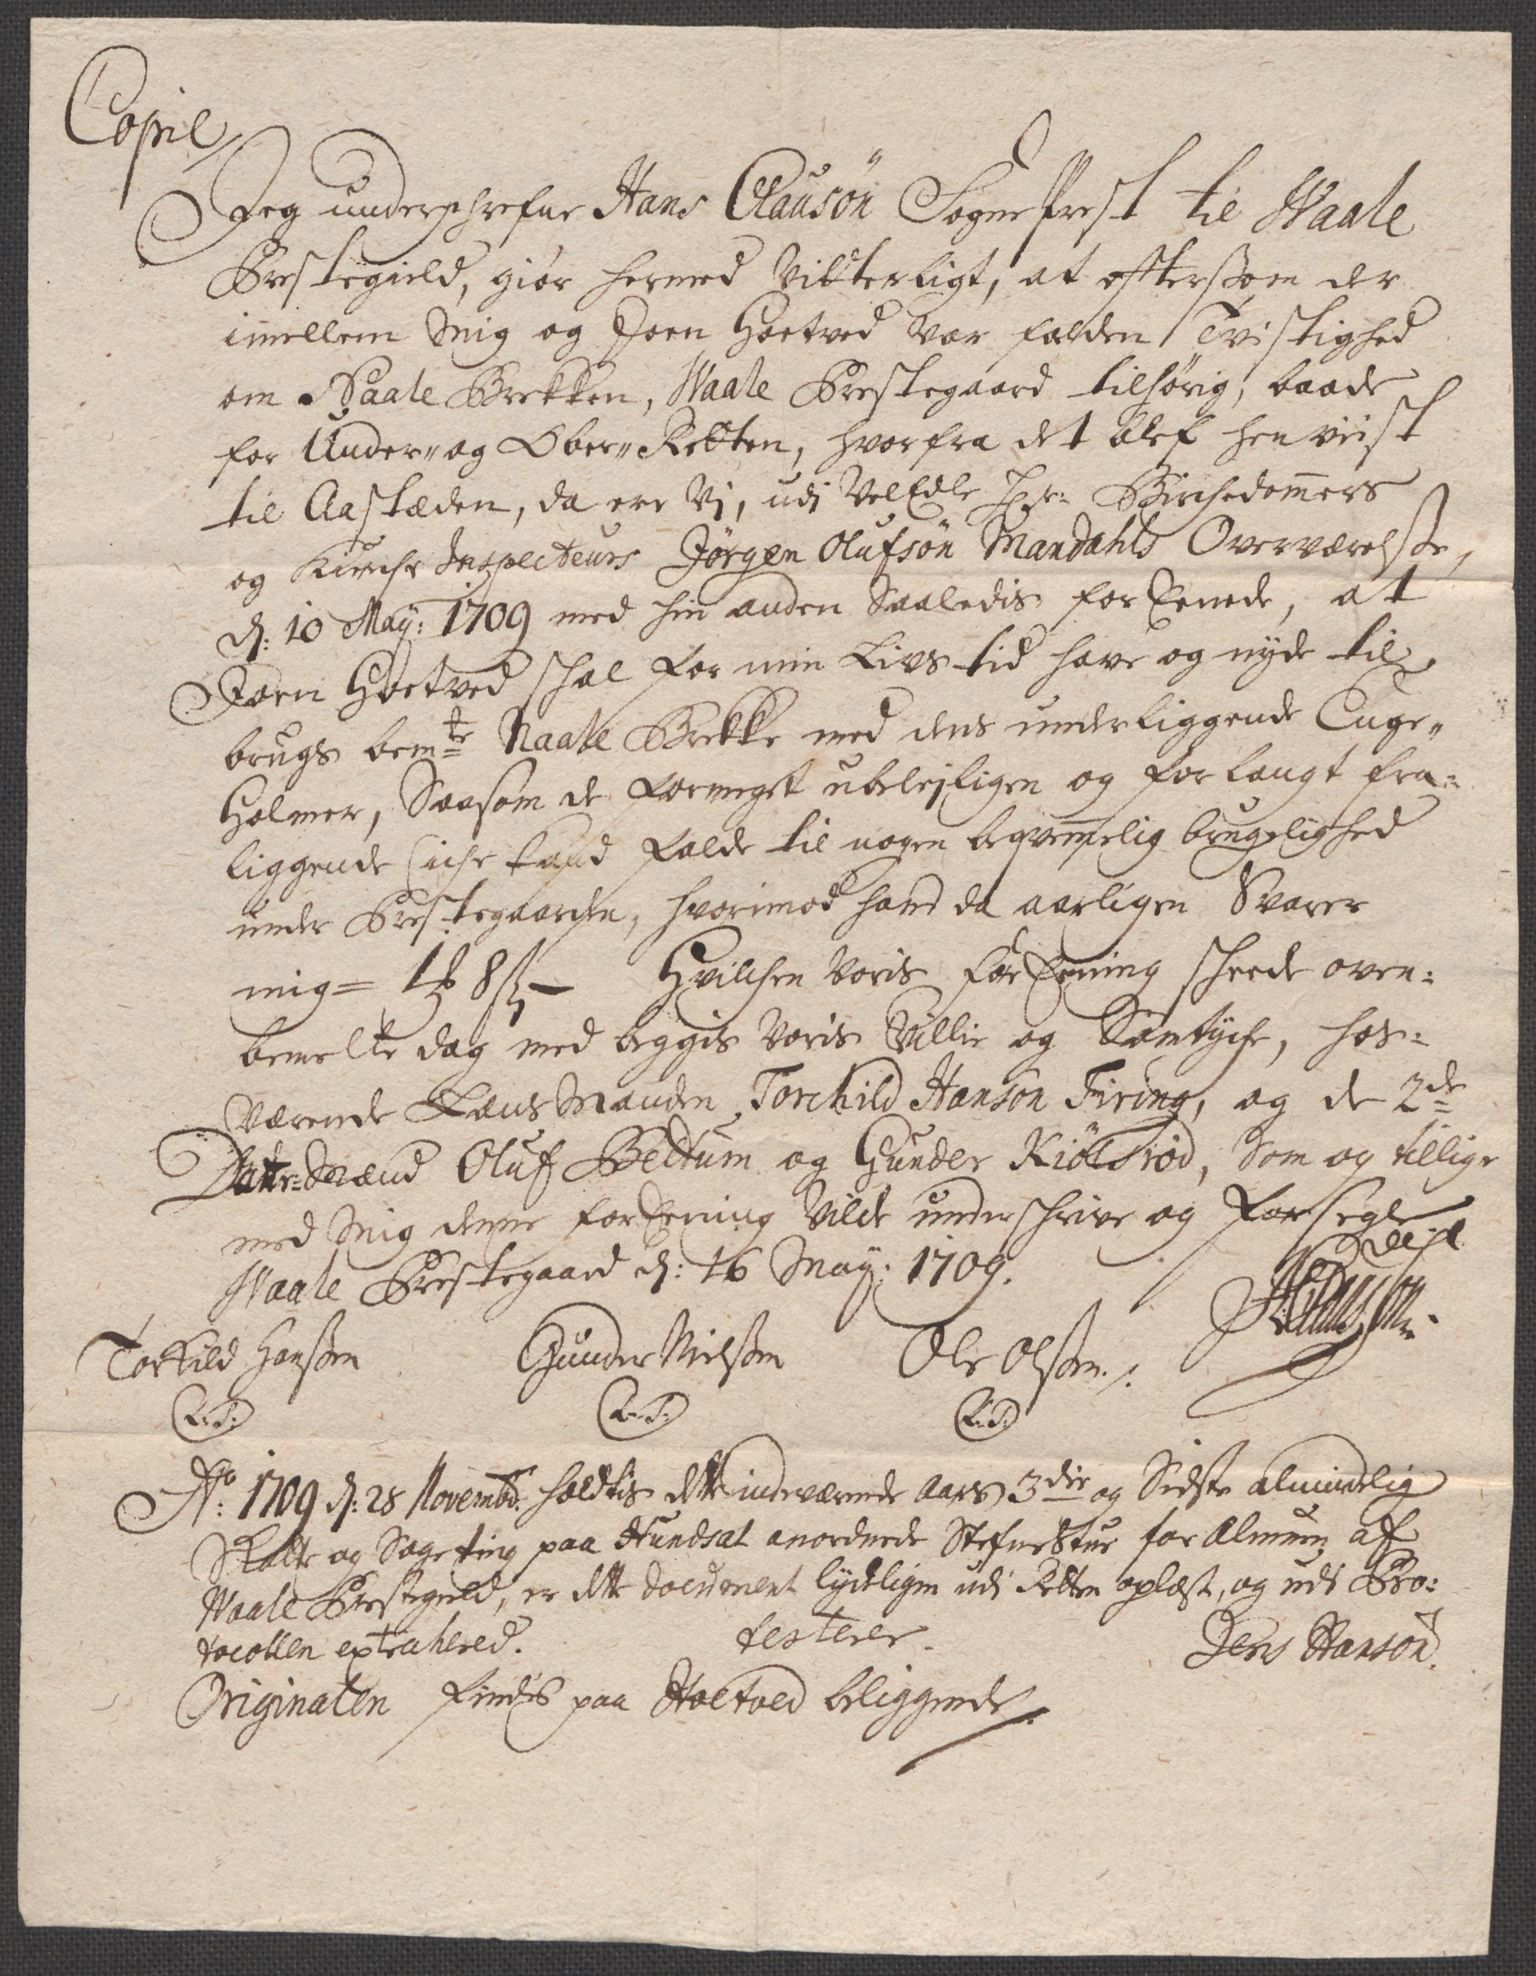 Copie
Jeg underschrefne Hans Clausøn Sogne Prest til Waale
Prestegield, giør hermed Vitterligt, at eftersom der
imellem Mig og Joen Hoetved var falden Tvistighed
om Naale Brekken, Waale Prestegaard tilhørig, baade
for Under- og Ober-Retten, hvorfra det blef henviist
til Aastæden, da ere Vj, udj VelEdle Hr: Birchedommers
og Kirche Inspecteurs Jørgen Olufsøn Mandahls Overværelse,
d: 10 May: 1709 med hin anden Saaledis forEenede, at
Joen Hoetved schal for min Livs tid have og nyde til
brugs bem:te Naale Brekke med dens underliggende Enge-
Holmer, Saasom de formeget ubelejligen og forlangt fra-
liggende iche kand falde til nogen beqvemmelig brugelighed
under Prestegaarden, hvorimod hand da aarligen Svarer
mig = 1 rd 8 s - Hvilchen Voris forEening scheede oven-
bemelte dag med beggis Voris Villie og Samtyche, hos-
værende LænsManden Torchild Hansøn Firing, og de 2de
Dannemænd Oluf Beltum og Gunder Kiølsrød, Som og tillige
med Mig denne forEening Vilde underschrive og forsegle
Waale Prestegaard d: 16 May: 1709. H Clausøn
Torkild Hanssen Gunder Nielssen Ole Olssen
L.S: L.S: L.S:
Ao: 1709 d: 28 Novembr: holdtis dette indeværende Aars 3die og Sidste almindelig
Skatte og Sageting paa Hundsal anordnede Stefne Stue for Almuen af
Waale Prestegield, er dette document lydeligen udi Retten oplæst, og udi Pro-
tocollen extrahered. testerer. Jens Hansøn.
Originalen findis paa Hoetved beliggende